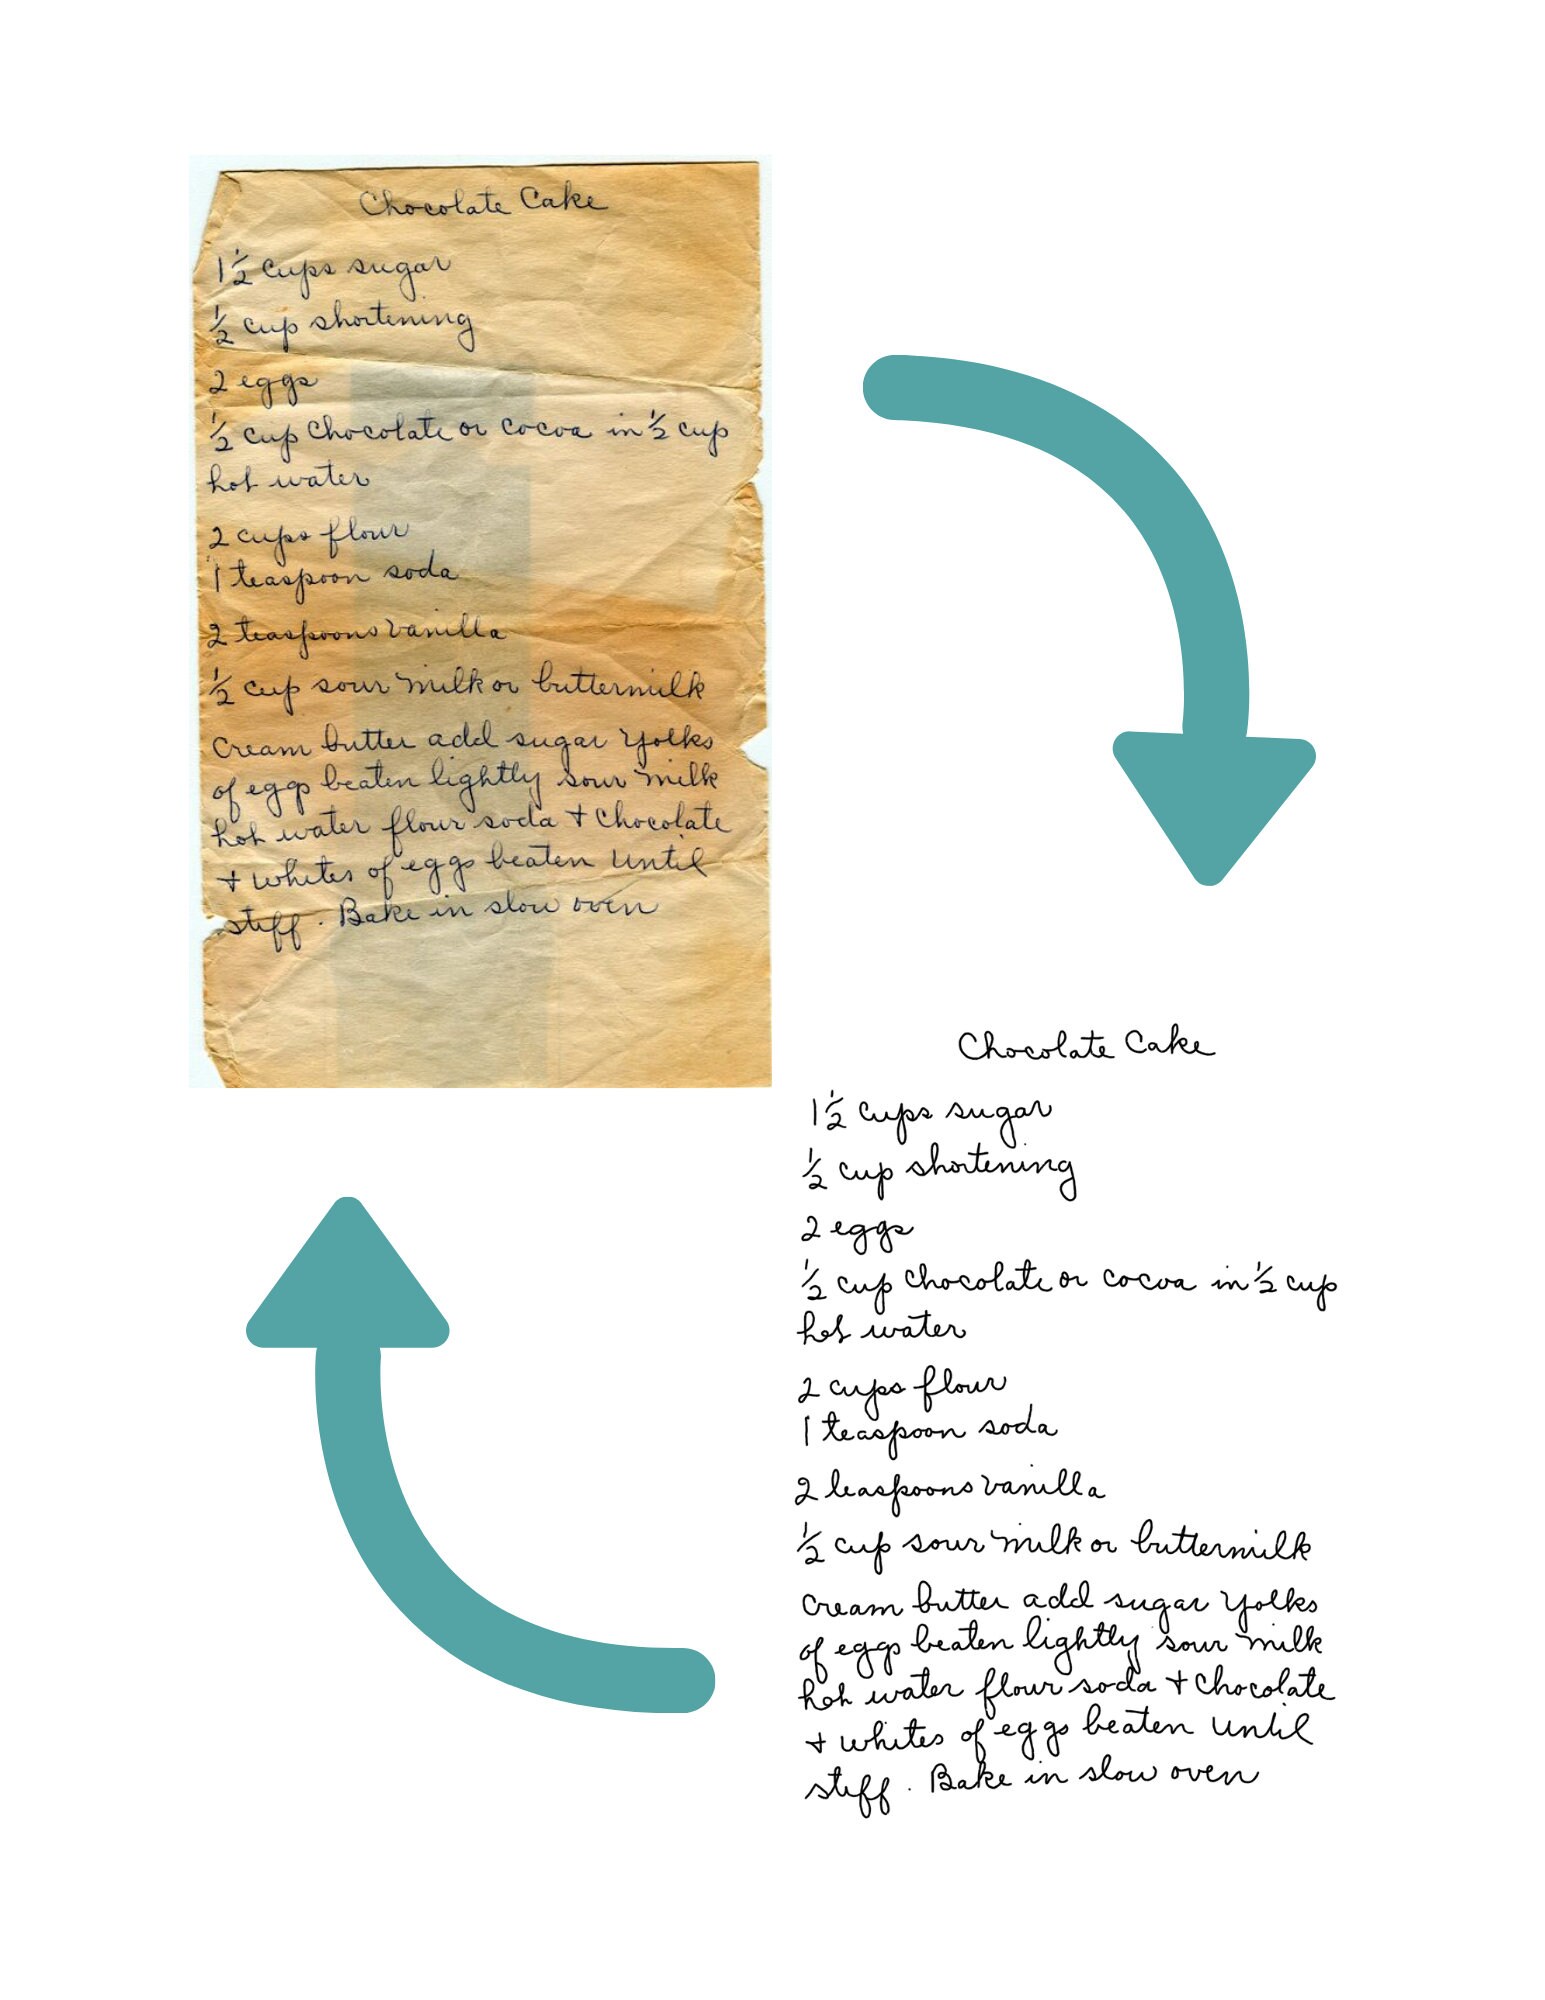 Chocolate Cake
1 1/2 cups sugar
1/2 cup shortening
2 eggs
1/2 cup chocolate or cocoa in 1/2 cup
hot water
2 cups flour
1 teaspoon soda
2 teaspoons vanilla
1/2 cup sour milk or buttermilk
Cream butter add sugar yolks
of eggs beaten lightly sour milk
hot water flour soda + chocolate
+ whites of eggs beaten until
stiff. Bake in slow oven
Chocolate Cake
1 1/2 cups sugar
1/2 cup shortening
2 eggs
1/2 cup chocolate or cocoa in 1/2 cup
hot water
2 cups flour
1 teaspoon soda
2 teaspoons vanilla
1/2 cup sour milk or buttermilk
Cream butter add sugar yolks
of eggs beaten lightly sour milk
hot water flour soda + chocolate
+ whites of eggs beaten until
stiff. Bake in slow oven